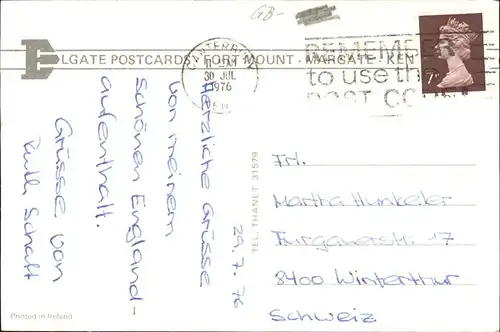 GB-
ELGATE POSTCARDS, PORT MOUNT, MARGATE, KENT
CANTERBURY
30 JUL
1976
REMEMBER
to use the
POST CODE
7P
29.7.76
Herzliche Grüsse
von meinem
schönen England-
aufenthalt.
Grüsse von
Ruth
TEL. THANET 31579
Frl.
Martha Hunkeler
Turgauerstr. 17
8400 Winterthur
Schweiz
Printed in Ireland